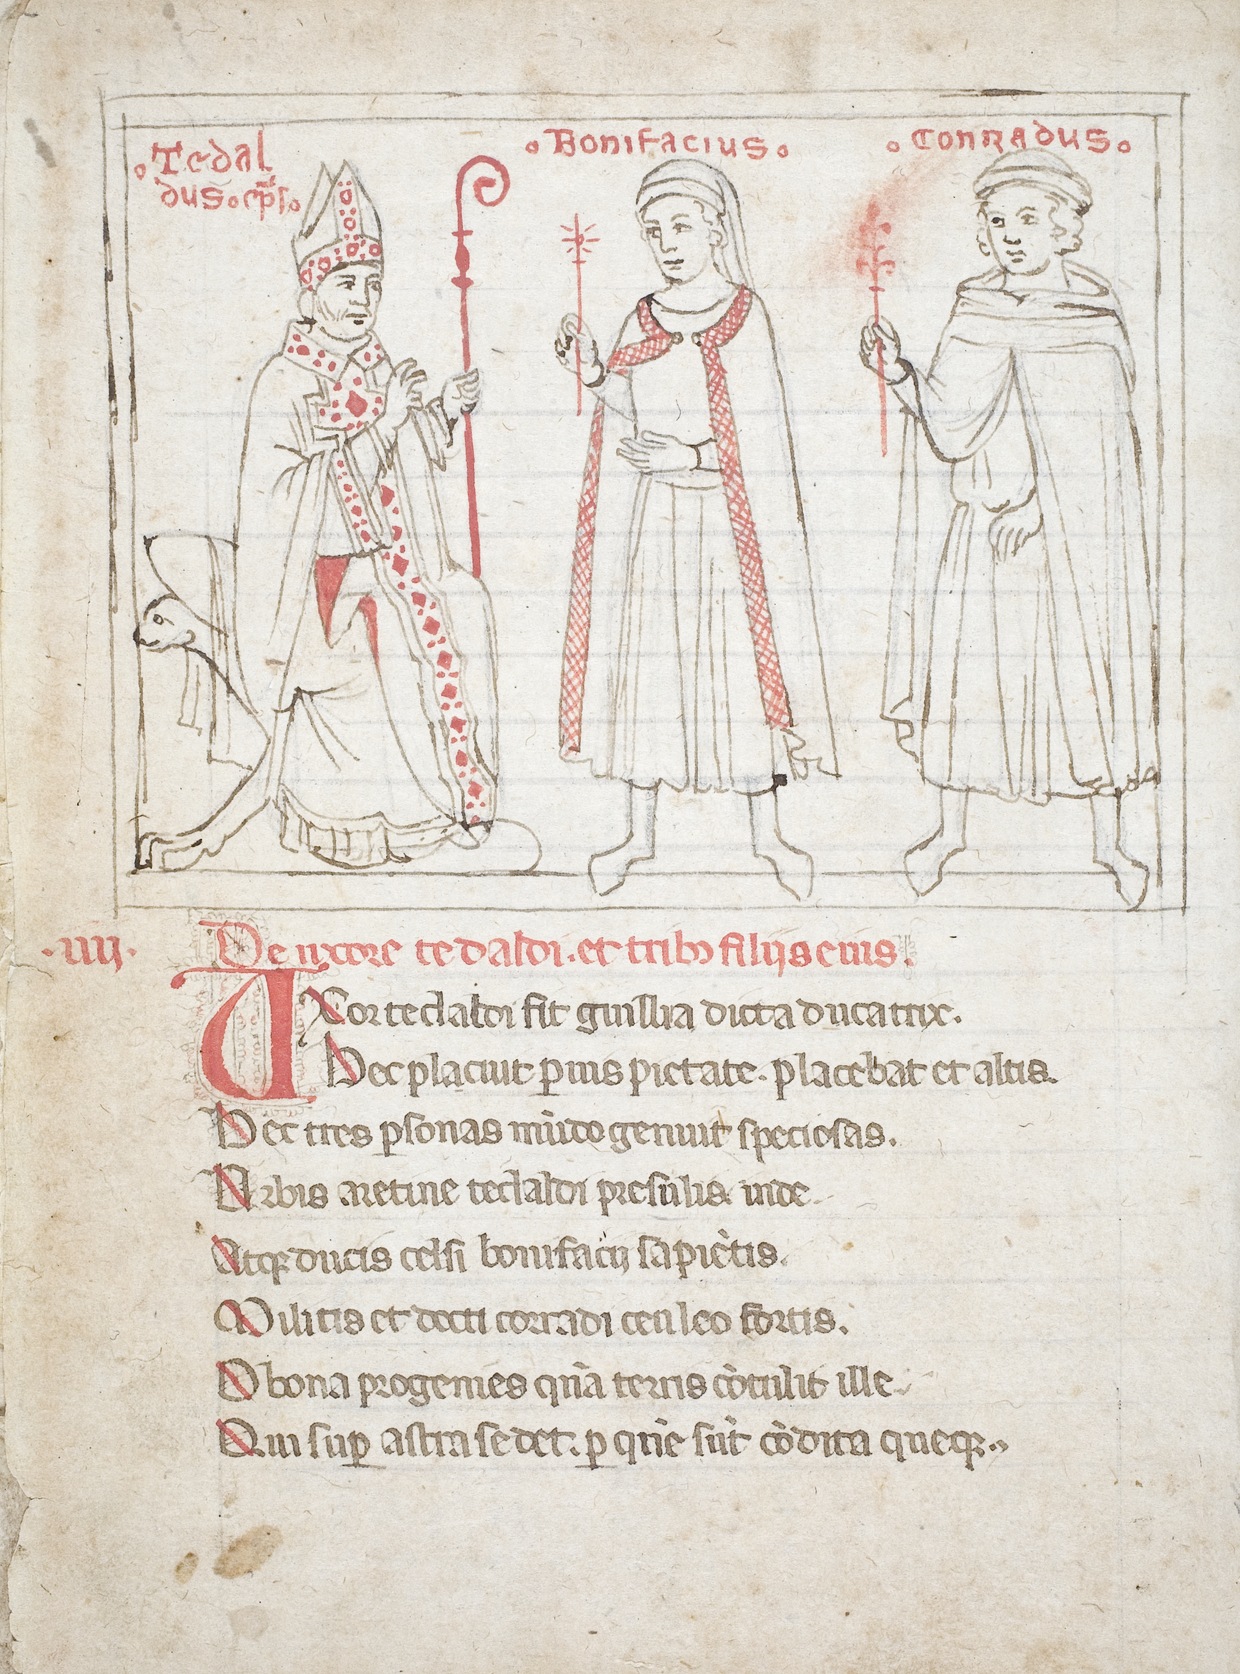 Tedal
dus. ep̄s.
Bonifacius
Conradus
.IIII.
De uxore tedaldi. et tribꝰ filijs eius.
Uxor tedaldi fit guillia dicta ducatrix.
Hec placuit p̱uis pietate. placebat et altis.
Hec tres ꝑsonas mūdo genuit speciosas.
Urbis aretine tedaldi presulis inde.
Atqꝫ ducis celsi bonifacij sapiētis.
Militis et docti corradi ceu leo fortis.
O bona progenies qūa terris cōtulit ille.
Qui suꝑ astra sedet. ꝑ quē sūt cōdita queqꝫ.